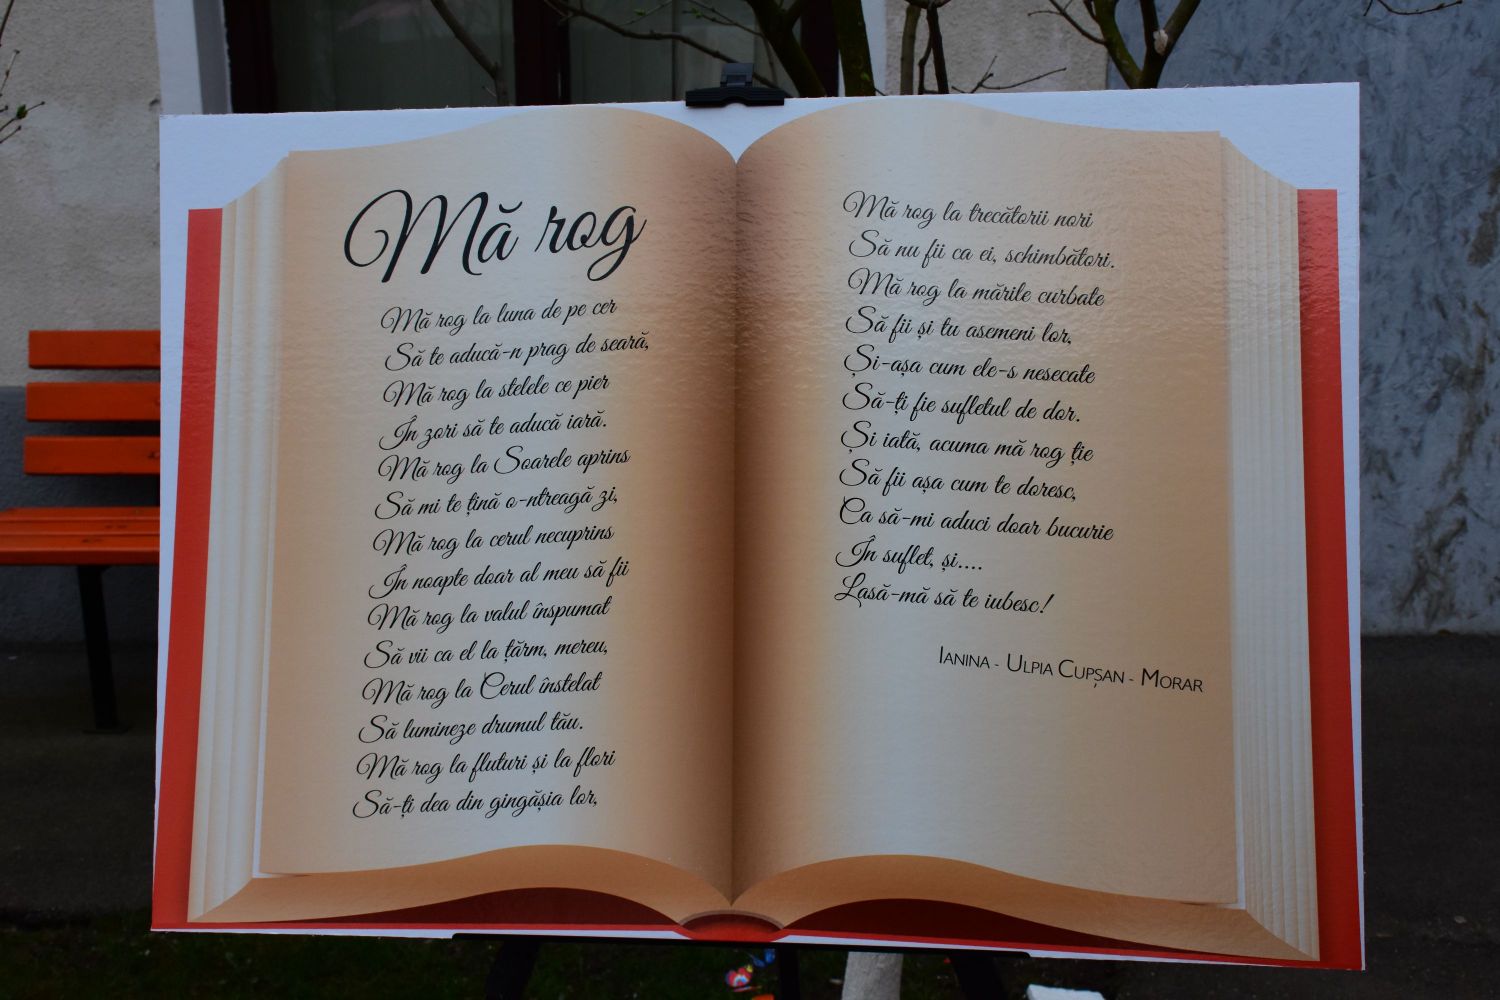 Mă rog
Mă rog la luna de pe cer
Să te aducă-n prag de seară,
Mă rog la stelele ce pier
În zori să te aducă iară.
Mă rog la Soarele aprins
Să mi te țină o-ntreagă zi,
Mă rog la cerul necuprins
În noapte doar al meu să fii
Mă rog la valul înspumat
Să vii ca el la țărm, mereu,
Mă rog la Cerul înstelat
Să lumineze drumul tău.
Mă rog la fluturi și la flori
Să-ți dea din gingășia lor,
Mă rog la trecătorii nori
Să nu fii ca ei, schimbători.
Mă rog la mările curbate
Să fii și tu asemeni lor,
Și-așa cum ele-s nesecate
Să-ți fie sufletul de dor.
Și iată, acuma mă rog ție
Să fii așa cum te doresc,
Ca să-mi aduci doar bucurie
În suflet, și....
Lasă-mă să te iubesc!
Ianina - Ulpia Cupșan - Morar